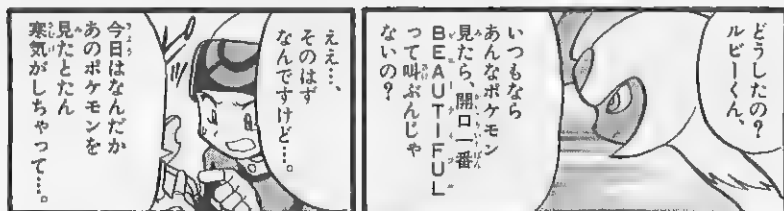 どうしたの?
ルビーくん、
いつもなら
あんなポケモン
見たら、開口一番
BEAUTIFUL
って叫ぶんじゃ
ないの?
ええ…、
そのはず
なんですけど…。
今日はなんだか
あのポケモンを
見たとたん
寒気がしちゃって…。